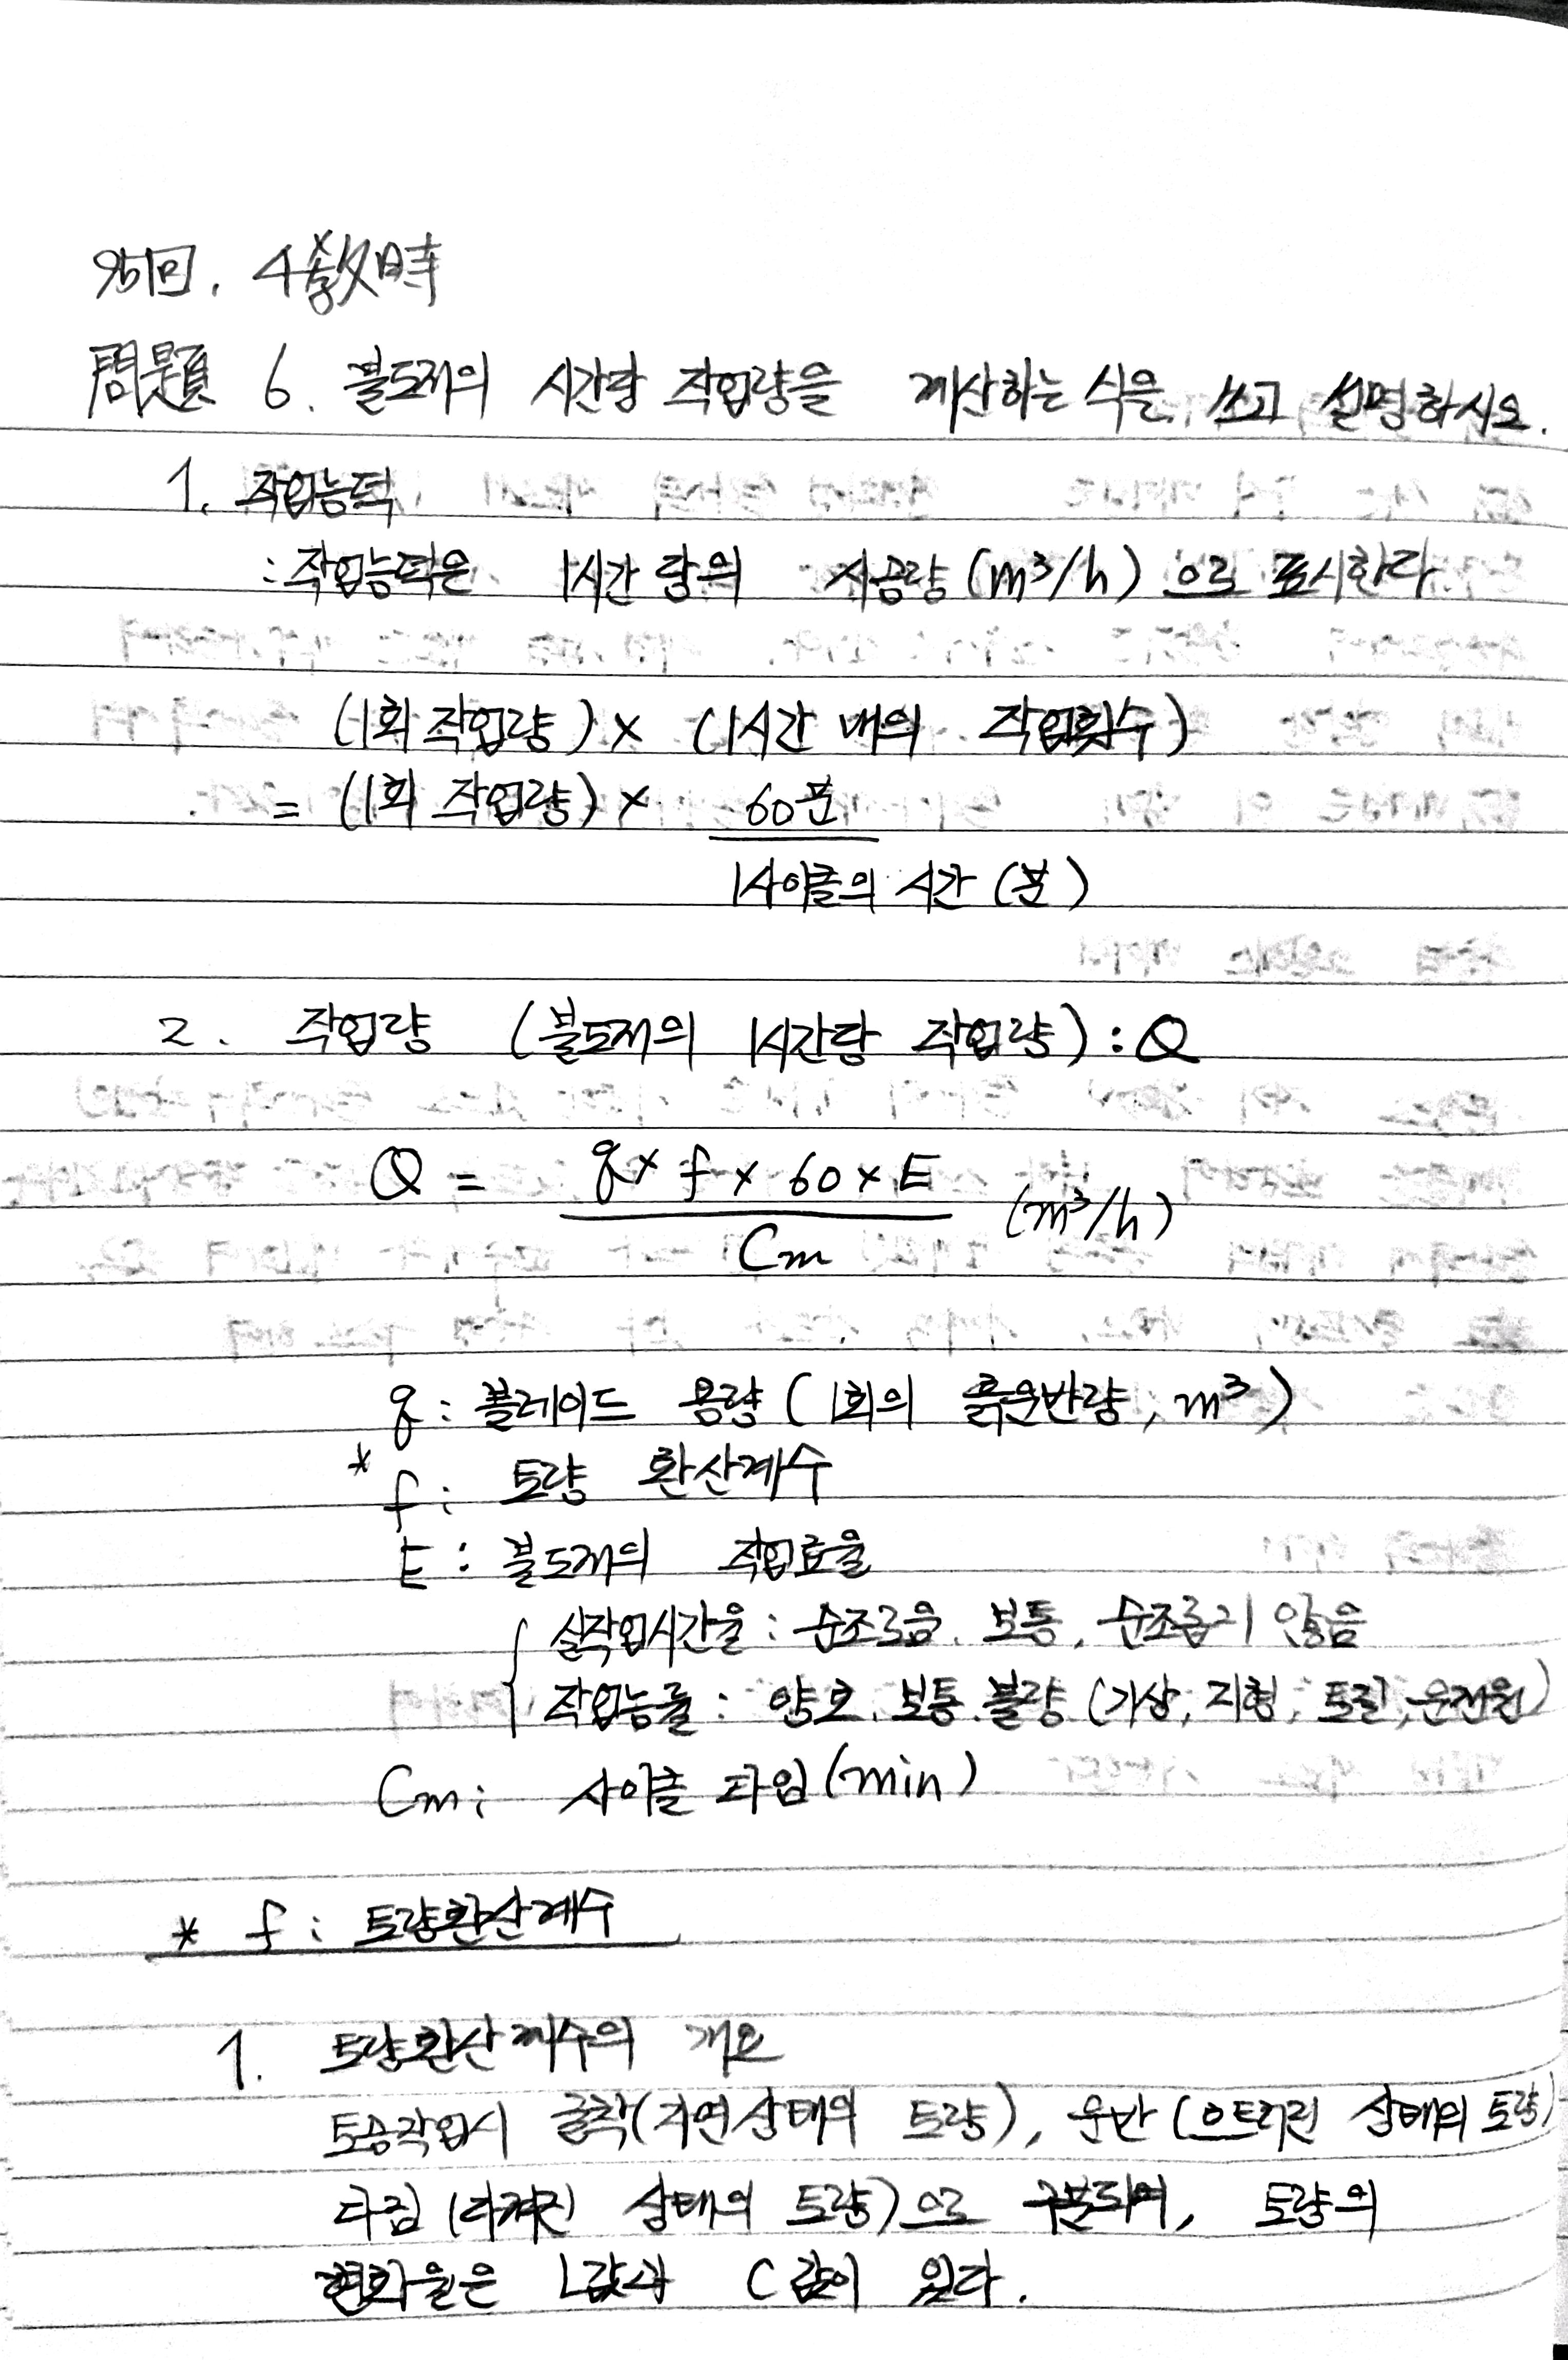 95回. 4敎時
問題 6. 불도저의 시간당 작업량을 계산하는 식을 쓰고 설명하시오.
1. 작업능력
: 작업능력은 1시간 당의 시공량 (m³/h) 으로 표시한다
(1회 작업량) × (1시간 내의 작업횟수)
= (1회 작업량) × 60분
1사이클의 시간 (분)
2. 작업량 (불도저의 1시간당 작업량) : Q
Q = q × f × 60 × E (m³/h)
Cm
q : 블레이드 용량 (1회의 흙운반량, m³)
* f : 토량 환산계수
E : 불도저의 작업효율
실작업시간율 : 순조로움. 보통, 순조롭지 않음
작업능률 : 양호. 보통. 불량 (기상, 지형, 토질, 운전원)
Cm : 사이클 타임 (min)
* f : 토량환산계수
1. 토량환산계수의 개요
토공작업시 굴착(자연상태의 토량), 운반 (흐트러진 상태의 토량)
다짐 (다져진 상태의 토량)으로 구분되며, 토량의
변화율은 L값과 C값이 있다.